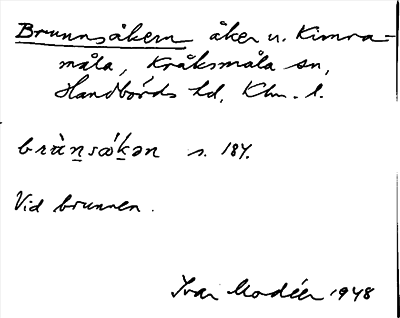 Brunnsåkern åker u. Kimra-
måla, Kråksmåla sn,
Handbörds hd, Klm. l.
brànsǽkən s. 187.
Vid brunnen.
Ivar Modéer 1948